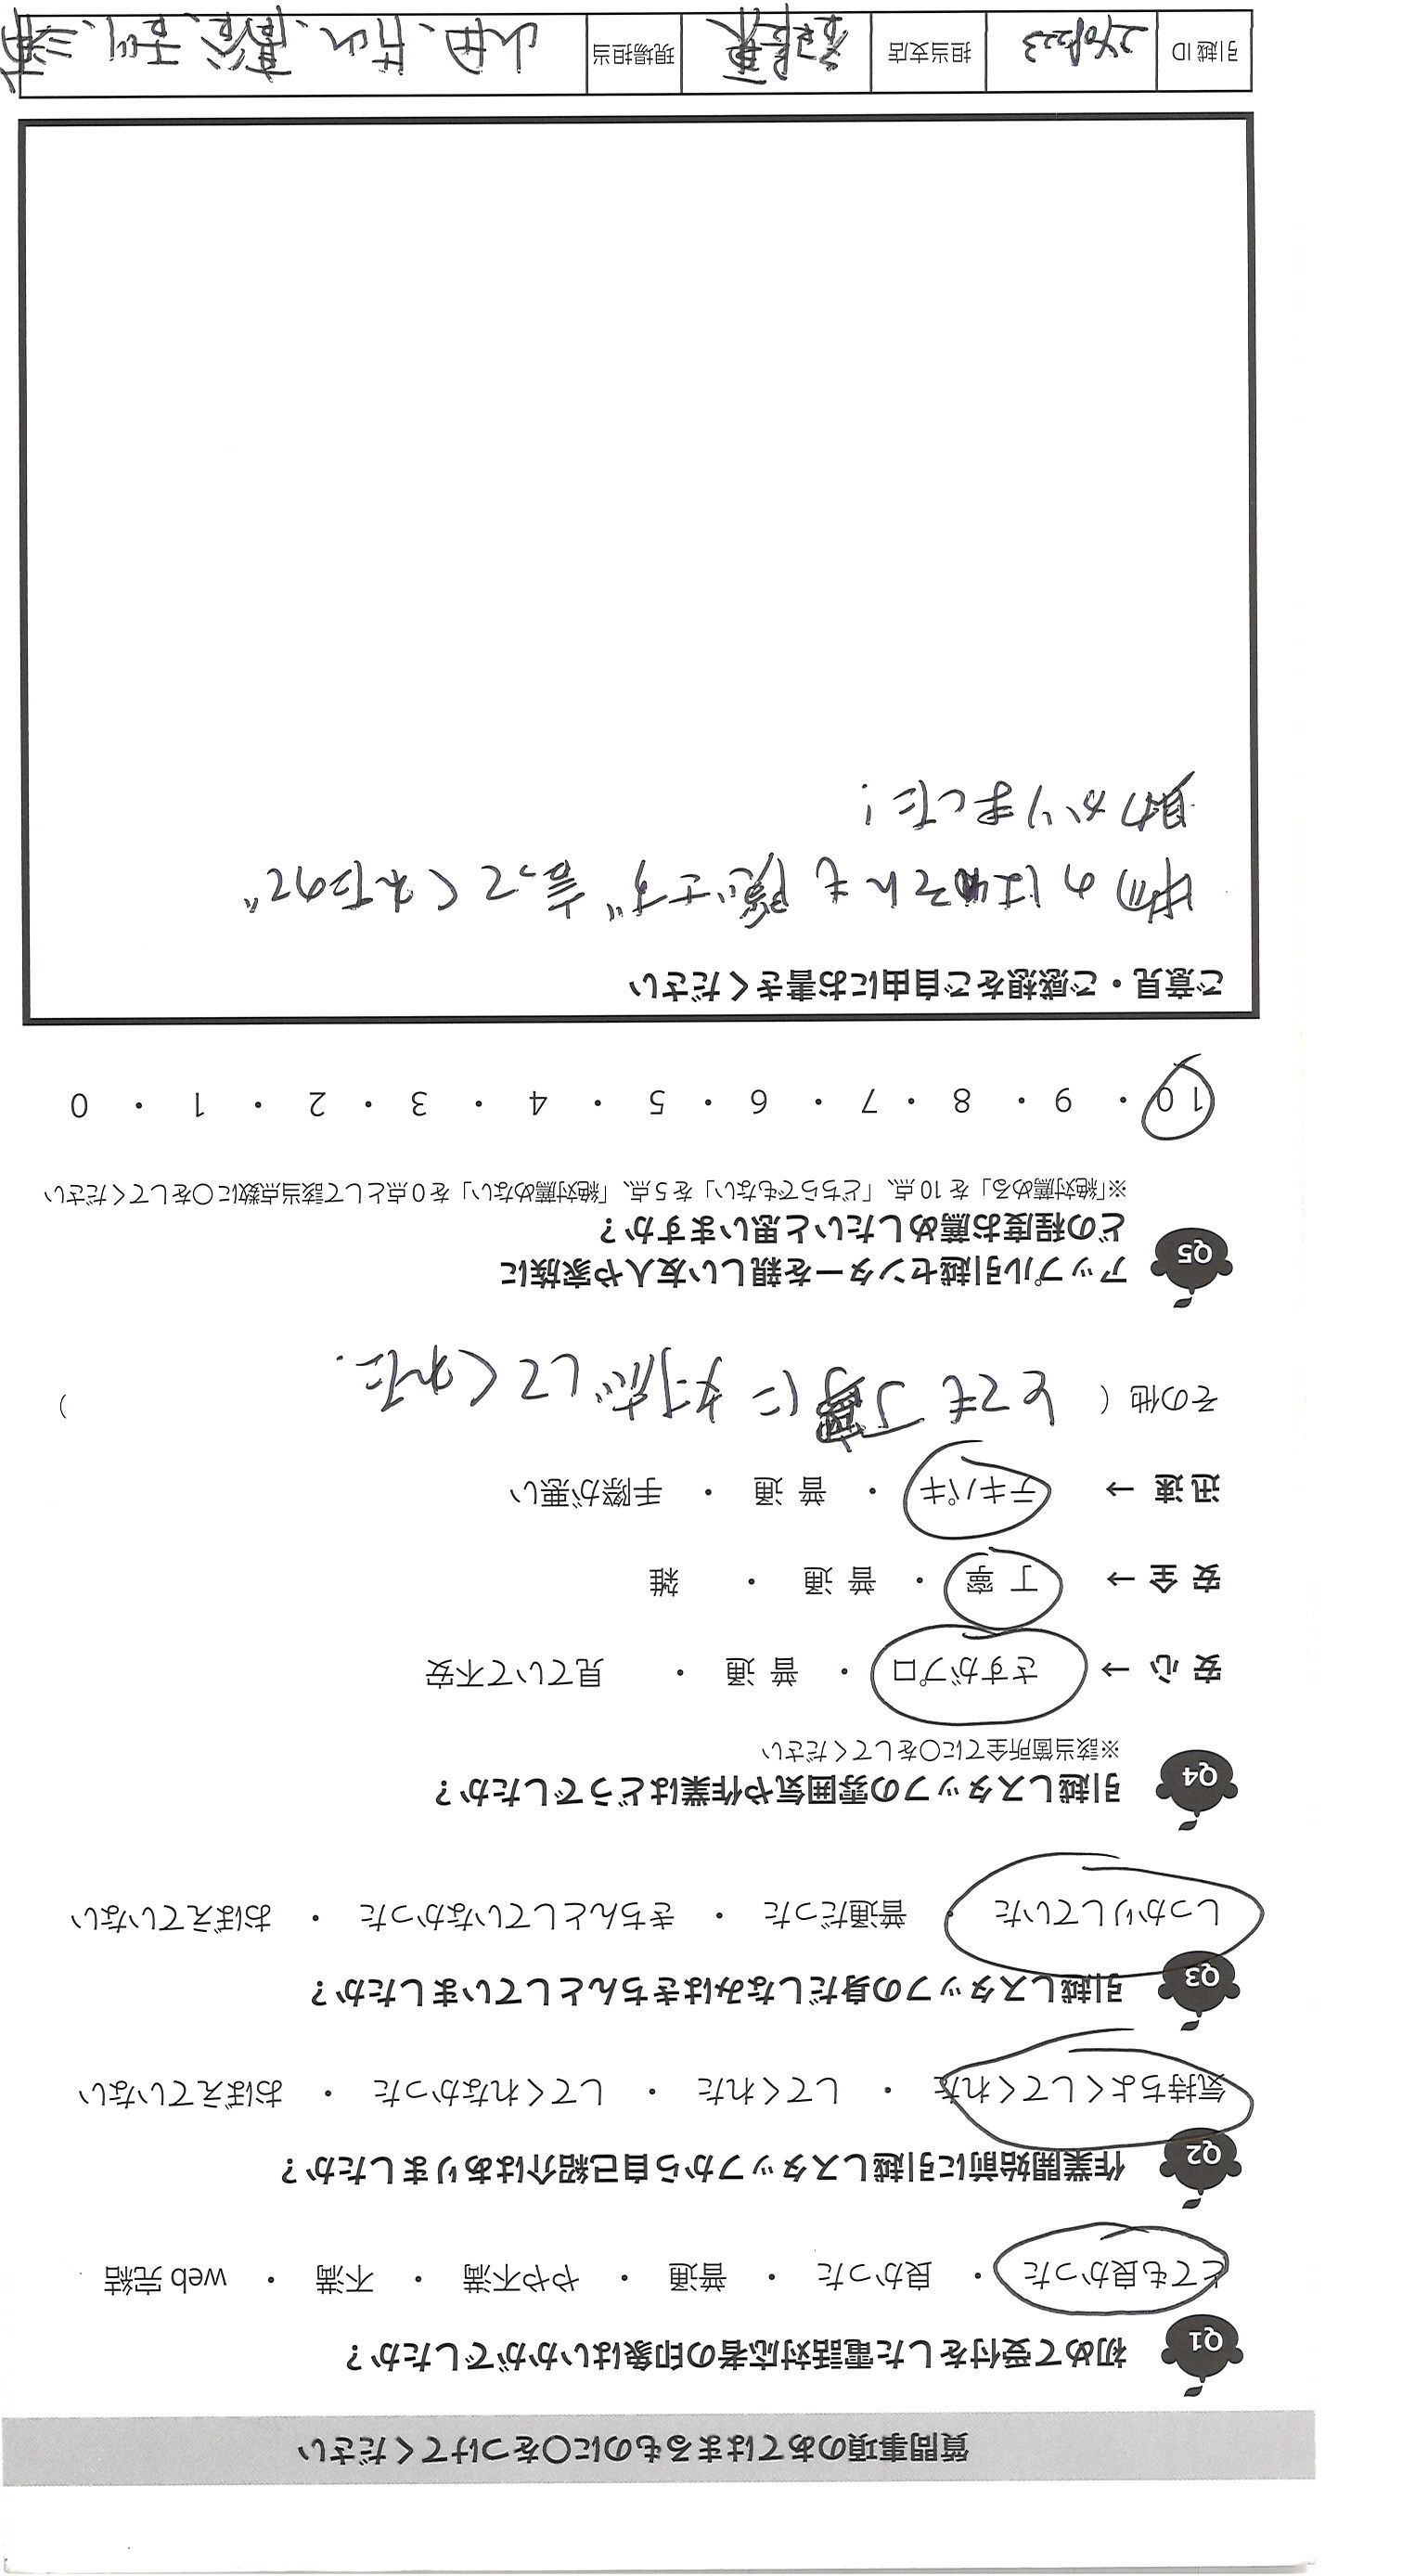 質問事項のあてはまるものに○をつけてください
Q1 初めて受付をした電話対応者の印象はいかがでしたか？
とても良かった ・ 良かった ・ 普通 ・ やや不満 ・ 不満 ・ web 完結
Q2 作業開始前に引越しスタッフから自己紹介はありましたか？
気持ちよくしてくれた ・ してくれた ・ してくれなかった ・ おぼえていない
Q3 引越しスタッフの身だしなみはきちんとしていましたか？
しっかりしていた ・ 普通だった ・ きちんとしていなかった ・ おぼえていない
Q4 引越しスタッフの雰囲気や作業はどうでしたか？
※該当箇所全てに○をしてください
安 心 → さすがプロ ・ 普 通 ・ 見ていて不安
安 全 → 丁 寧 ・ 普 通 ・ 雑
迅 速 → テキパキ ・ 普 通 ・ 手際が悪い
その他（ とても丁寧に対応してくれた. ）
Q5 アップル引越センターを親しい友人や家族に
どの程度お薦めしたいと思いますか？
※「絶対薦める」を 10 点、「どちらでもない」を 5 点、「絶対薦めない」を 0 点として該当点数に○をしてください
10 ・ 9 ・ 8 ・ 7 ・ 6 ・ 5 ・ 4 ・ 3 ・ 2 ・ 1 ・ 0
ご意見・ご感想をご自由にお書きください
物のはそんも隠さず言ってくれたので
助かりました！
引越 ID 担当支店 現場担当 山田、片山、